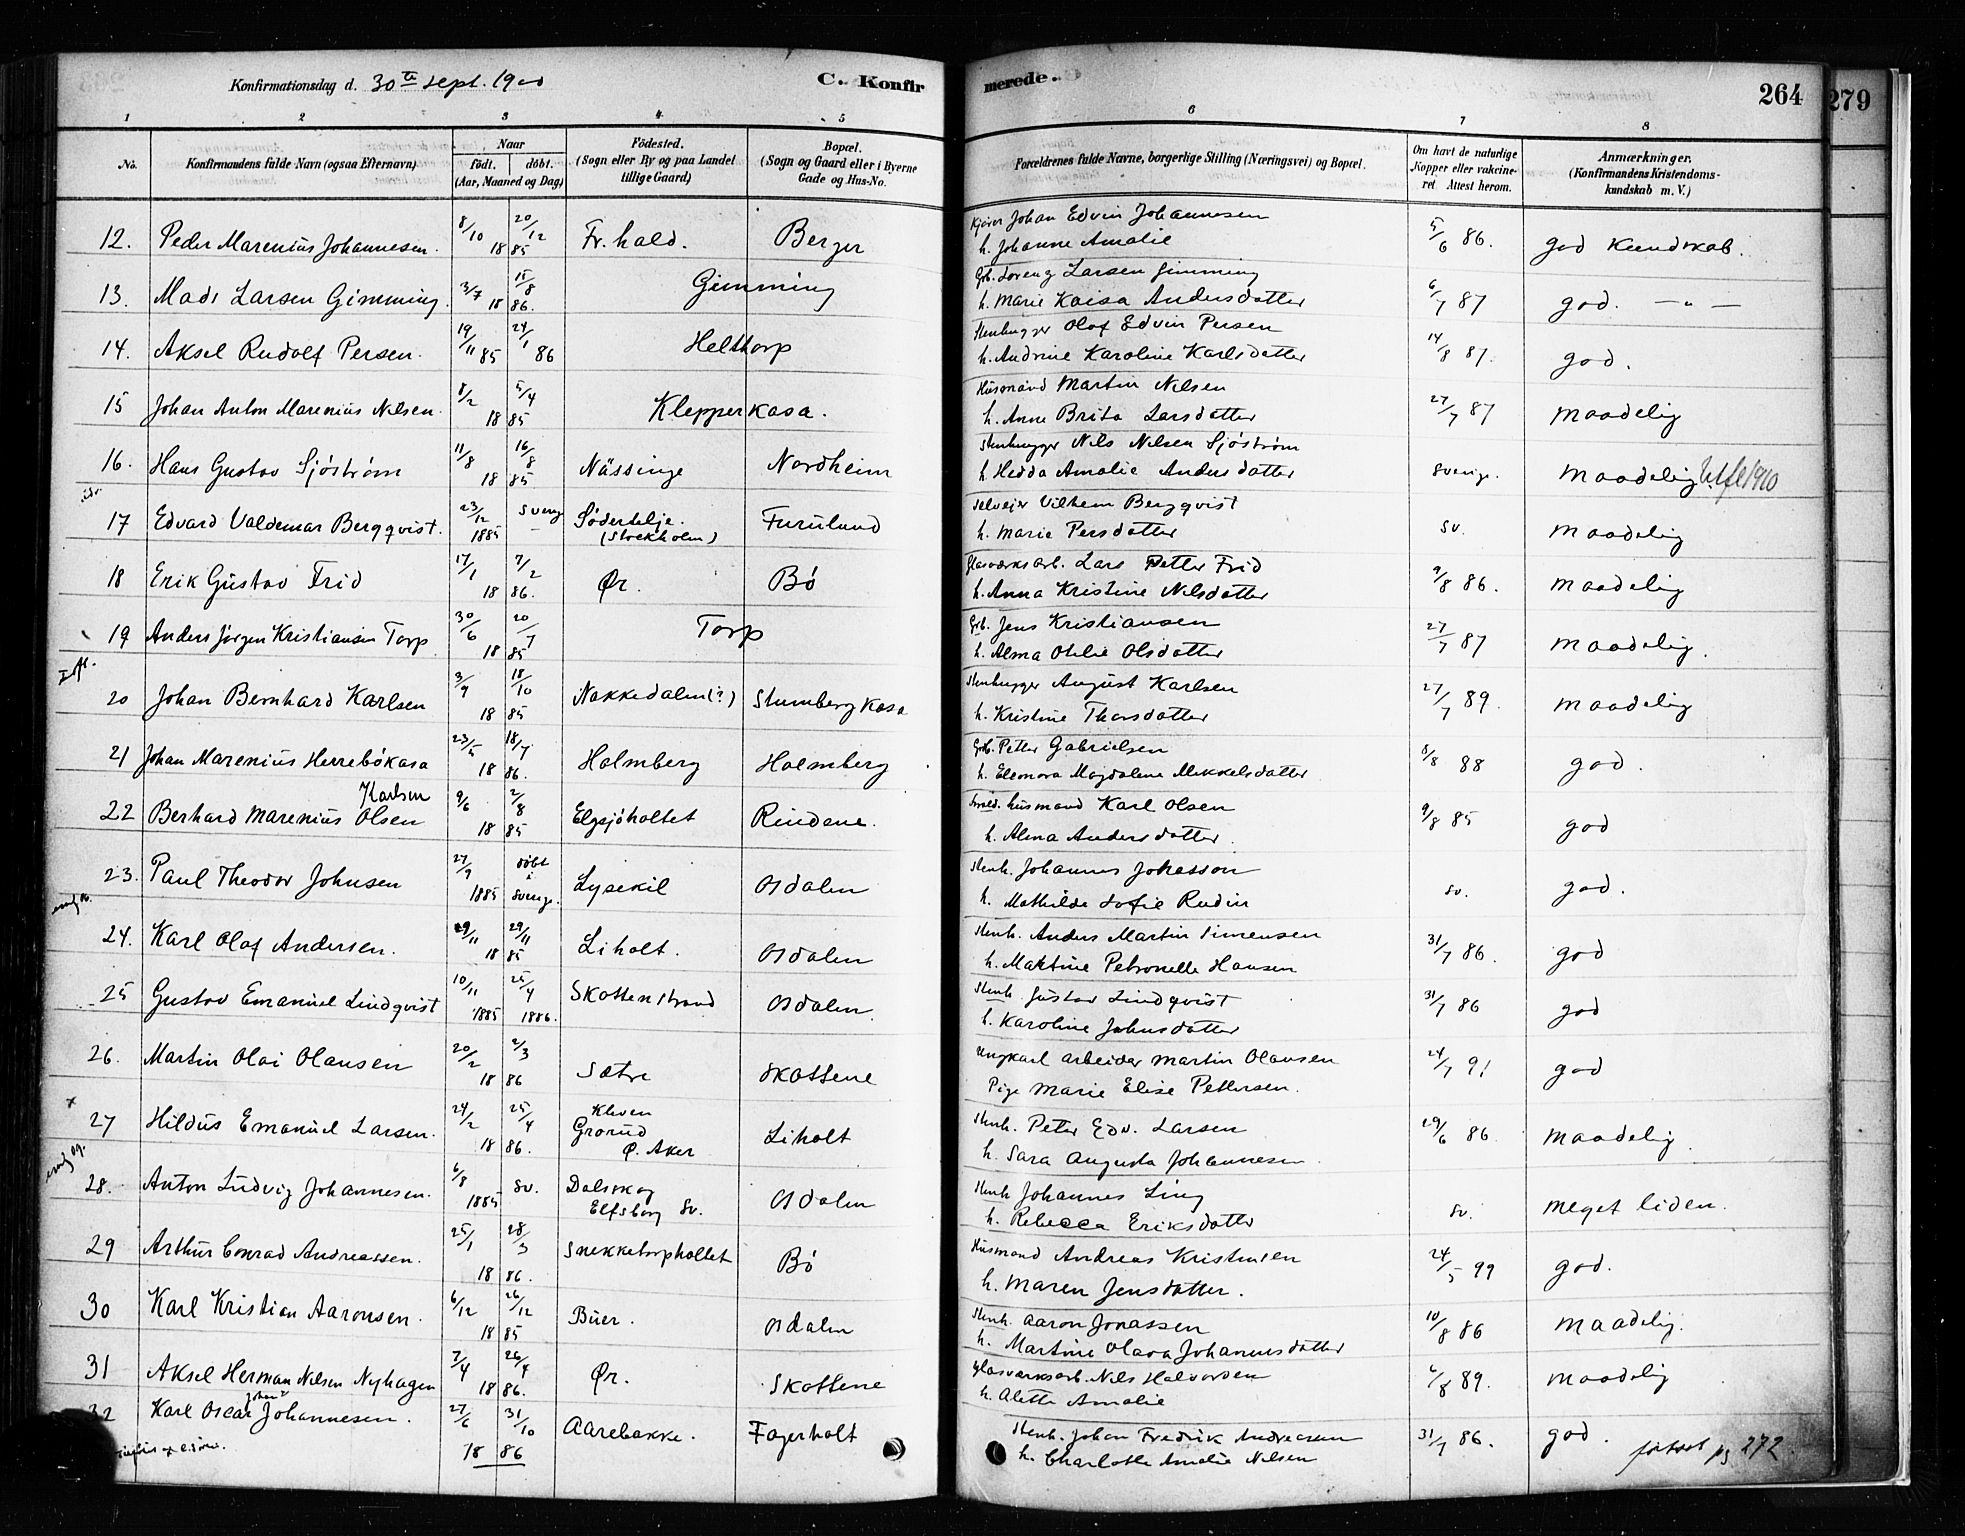 Konfirmationsdag d. 30te Sept. 1900 C. Konfirmerede. 264 279
1 2 3 4 5 6 7 8
No. Konfirmandens fulde Navn (ogsaa Efternavn) Naar födt. döbt. (Aar, Maaned og Dag) Födested. (Sogn eller By og paa Landet tillige Gaard) Bopæl. (Sogn og Gaard eller i Byerne Gade og Hus-No. Forældrenes fulde Navne, borgerlige Stilling (Næringsvei) og Bopæl. Om havt de naturlige Kopper eller vakcineret. Attest herom. Anmærkninger. (Konfirmandens Kristendomskundskab m. V.)
12. Peder Marenius Johannesen. 8/10 20/12 1885 Fr.hald. Berger Kjører Johan Edvin Johannesen 5/6 86. god Kundskab.
h. Johanne Amalie
13. Mads Larsen Gimming. 3/7 15/8 1886. Gimming Grb. Lorenz Larsen Gimming 6/7 87 god. — " —
h. Marie Kaisa Andersdatter
14. Aksel Rudolf Persen. 19/11 85 24/1 86 Helttorp Stenhugger Olof Edvin Persen 14/8 87. god.
h. Andrine Karoline Karlsdatter
15 Johan Anton Marenius Nilsen. 8/2 5/4 1885 Klepperkasa. Husmand Martin Nilsen 27/7 87 maadelig
h. Anne Brita Larsdatter
16. Hans Gustav Sjöström 11/8 16/8 1885 Nässinge Nordheim Stenhugger Nils Nilsen Sjöström Sverige. maadelig Utfl 1910
h. Hedda Amalie Andersdatter
17 Edvard Valdemar Bergqvist. 23/12 1885 Sverig — Södertelje. (Stockholm) Furulund Selveier Vilhem Bergqvist Sv. maadelig
h. Marie Persdatter
18 Erik Gustav Frid 17/1 7/2 1886. Ør. Bö Glasværksarb. Lars Petter Frid 9/8 86. maadelig
h. Anna Kristine Nilsdatter
19 Anders Jörgen Kristiansen Torp 30/6 20/7 1885 Torp Grb. Jens Kristiansen 27/7 87 maadelig.
h. Alma Otilie Olsdatter
20 Johan Bernhard Karlsen 3/9 18/10 1885 Nakkedalen(?) Stumbergkasa Stenhugger August Karlsen 27/7 89. maadelig
h. Kristine Thorsdatter
21 Johan Marenius Herrebökasa 23/5 18/7 1886. Holmberg Holmberg Grb. Petter Gabrielsen 8/8 88 god.
h. Eleonora Magdalene Mikkelsdatter
22 Berhard Marenius Karlsen Olsen 9/6 2/8 1885 Elgsjöholtet Rindane. husmand Karl Olsen 9/8 85 god
h. Alma Andersdatter
23. Paul Theodor Johnsen 27/9 1885 döbt i Sverige. Lysekil Osdalen Stenh. Johannes Johasson Sv. god.
h. Mathilde Sofie Rudin
24. Karl Olof Andersen. 29/11 29/11 1885 Liholt. Osdalen Stenh. Anders Martin Simensen 31/7 86. god
h. Maktine Petronelle Hansen
25 Gustav Emanuel Lindqvist 10/11 1885 25/4 1886. Skottenstrand Osdalen. Stenh. Gustav Lindqvist 31/7 86 god
h. Karoline Johnsdatter
26. Martin Olai Olausen 20/2 2/3 1886 Sætre Skottene Ungkarl arbeider Martin Olausen 24/7 91 god
Pige Marie Elise Pettersen.
27 Hildus Emanuel Larsen. 24/2 25/4 1886. Kleven Grorud Ø. Aker Liholt Stenh. Peter Edv. Larsen 29/6 86 maadelig
h. Sara Augusta Johannesen
28. Anton Ludvig Johannesen. 6/8 1885 Sv. Dalskog Elfsborg Sv. Osdalen Stenh Johannes Ling Sv. meget liden.
h. Rebecca Eriksdatter
29 Arthur Conrad Andreassen. 25/1 28/3 1886. Snekketorpholtet Bö Husmand Andreas Kristensen 24/5 99 god.
h. Maren Jensdatter.
30 Karl Kristian Aaronsen. 6/12 26/12 1885 Buer. Osdalen Stenh. Aaron Jonassen 10/8 86 maadelig.
h. Martine Olava Johannesdatter
31 Aksel Herman Nilsen Nyhagen 7/4 26/4 1886. Ør. Skottene Glasværksarb. Nils Halvorsen 6/8 89. maadelig
h. Alette Amalie
32 Karl Oscar Johan? Johannesen. 27/6 31/10 1886 Aarebakke. Fagerholt Stenh. Johan Fredrik Andreassen 31/7 86. god.
h. Charlotte Amalie Nilsen fortsat pg 272